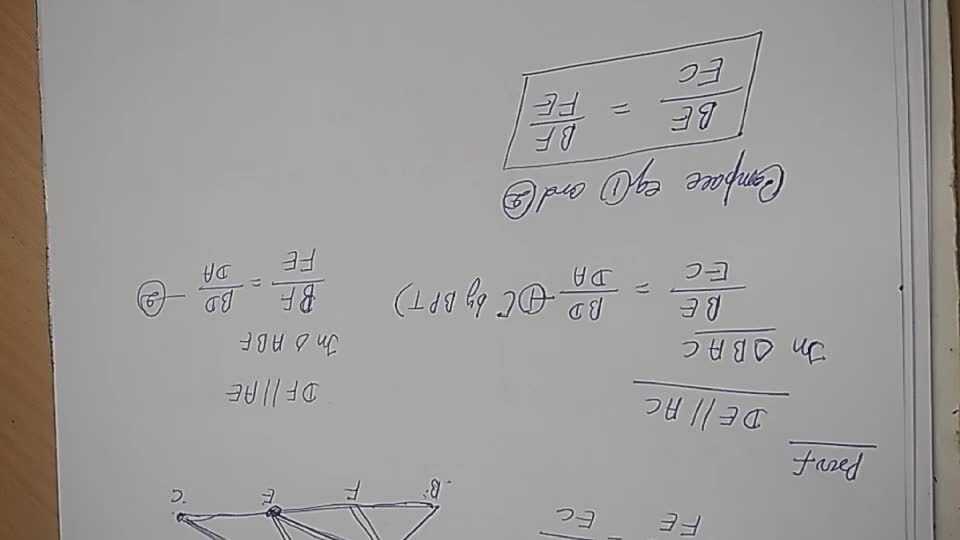 FE = EC
B F E C
Proof
DE // AC
In △BAC
BE/EC = BD/DA —① [by BPT)
DF // AE
In △ ABE
BF/FE = BD/DA —②
Compare eq ① and ②
BE/EC = BF/FE